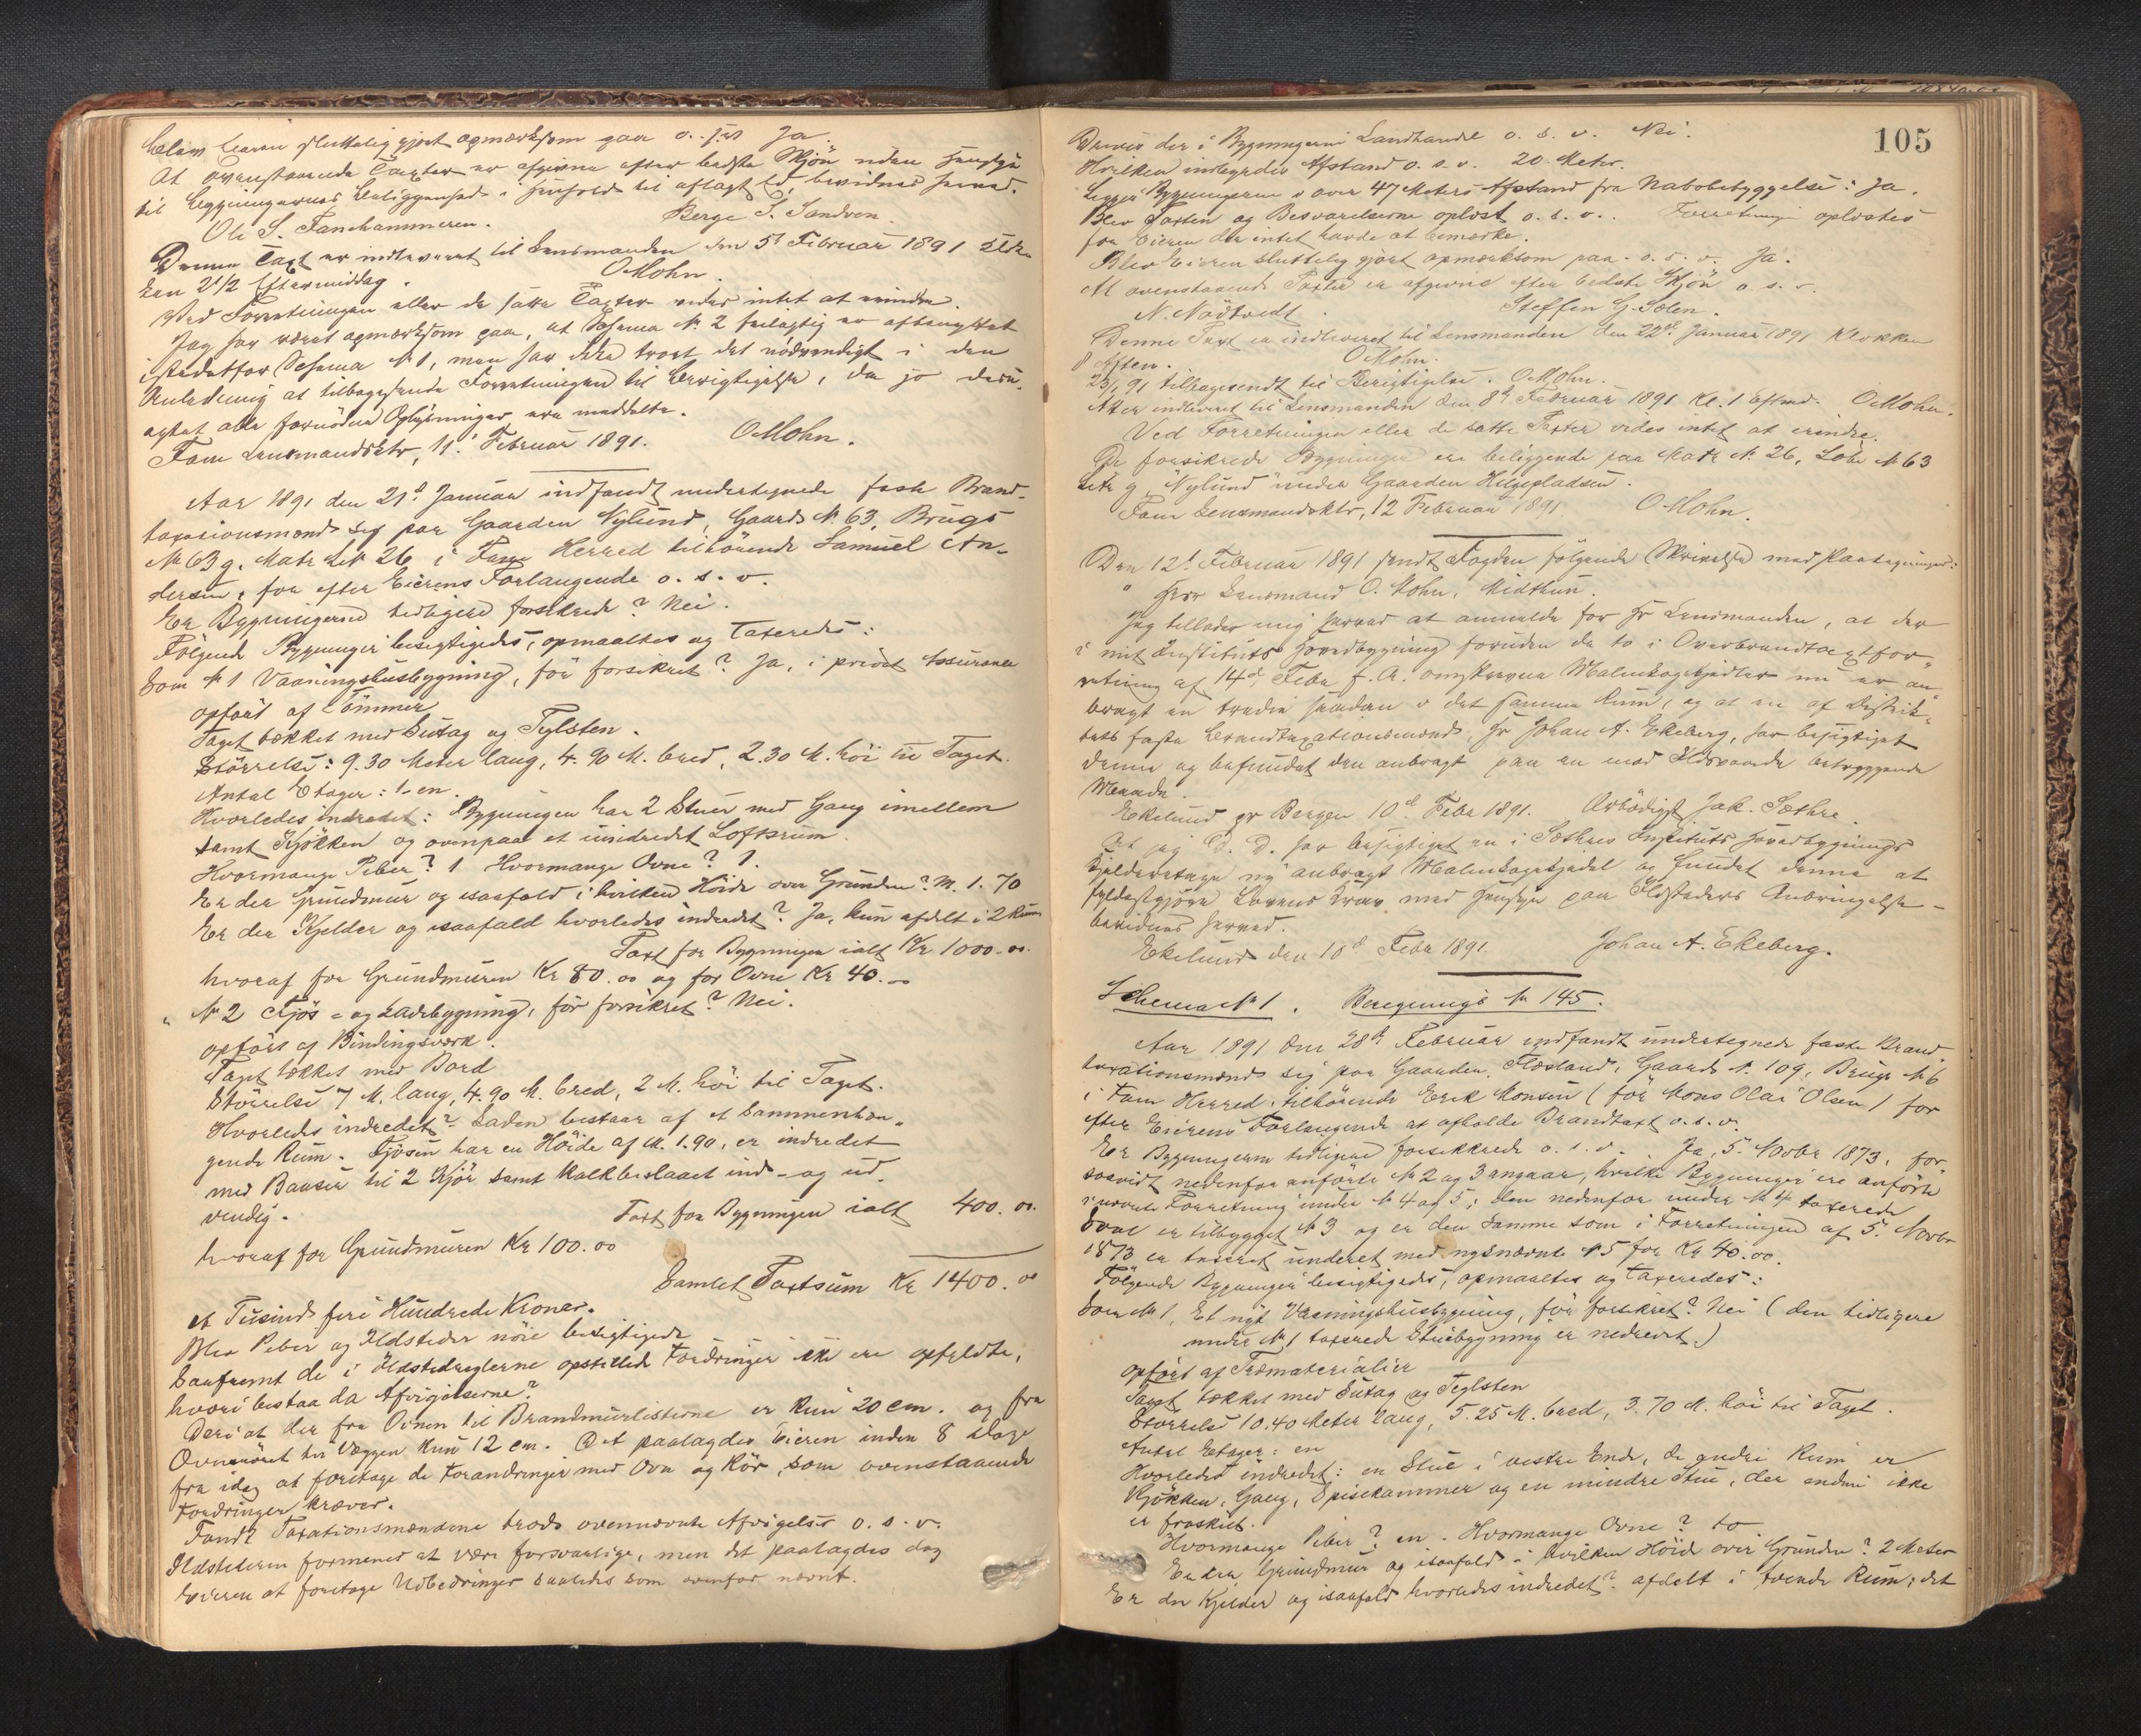 Blev Eieren sluttelig gjort opmærksom paa o. s. v. Ja.
At ovenstaaende Taxter er afgivne efter bedste Skjön uden Hensyn
til Bygningernes Beliggenhed i Henhold til aflagt Ed, bevidnes herved.
Ole S. Fanehammeren. Berge S. Sandven.
Denne Taxt er indleveret til Lensmanden den 5t Februar 1891 Klok-
ken 2 1/2 Eftermiddag. OMohn.
Ved Forretningen eller de satte Taxter vides intet at erindre.
Jeg har været opmærksom paa, at Schema N. 2 feilagtig er aftrykket
istedetfor Schema N 1, men har ikke troet det nödvendigt i den
Anledning at tilbagesende Forretningen til Berigtigelse, da jo desu-
agtet alle fornödne Oplysninger ere meddelte.
Fane Lensmandsktr, 11. Februar 1891. OMohn.
Aar 1891 den 21d Januar indfandt undertegnede faste Brand-
taxationsmænd sig paa Gaarden Nylund, Gaards N. 63, Brugs
N 63 g. Matr. Lit 26 i Fane Herred tilhörende Samuel An-
dersen, for efter Eierens Forlangende o. s. v.
Er Bygningerne tidligere forsikrede? Nei.
Fölgende Bygninger besigtigedes, opmaaltes og taxeredes:
Som N 1 Vaaningshusbygning, för forsikret? Ja, i privat Assurance
opfört af Tömmer
Taget tækket med Sutag og Teglsten.
Störrelse: 9.30 Meter lang, 4.90 M. bred, 2.30 M. höi til Taget.
Antal Etager: 1- en.
Hvorledes indredet: Bygningen har 2 Stuer med Gang imellem
samt Kjökken og ovenpaa et uindredet Loftsrum.
Hvormange Piber? 1 Hvormange Ovne? 1.
Er der Grundmur og isaafald i hvilken Höide over Grunden? M. 1.70
Er der Kjelder og isaafald hvorledes indredet? Ja, kun afdelt i 2 Rum
Taxt for Bygningen ialt Kr 1000.00.
hvoraf for Grundmuren Kr 80.00 og for Ovne Kr 40.00
" N 2 Fjös- og Ladebygning, för forsikret? Nei.
opfört af Bindingsværk.
Taget tækket med Bord
Störrelse 7 M. lang, 4.90 M. bred, 2 M. höi til Taget.
Hvorledes indredet? Laden bestaar af et sammenhæn-
gende Rum. Fjösen har en Höide af M. 1.90, er indredet
med Baaser til 2 Kjör samt kalkbeslaaet ind- og ud-
vendig. Taxt for Bygningen ialt 400.00.
hvoraf for Grundmuren Kr 100.00
Samlet Taxtsum Kr 1400.00
et Tusind fire Hundrede Kroner.
Blev Piber og Ildsteder nöie besigtigede
Saafremt de i Ildstedreglerne opstillede Fordringer ikke ere opfyldte,
hvori bestaa da Afvigelserne?
Deri at der fra Ovnen til Brandmurlisterne er kun 20 cm. og fra
Ovnsröret til Væggen kun 12 cm. Det paalagdes Eieren inden 8 Dage
fra idag at foretage de Forandringer med Ovn og Rör, som ovenstaaende
Fordringer kræver.
Fandt Taxationsmændene trods ovennævnte Afvigelser o. s. v.
Ildstederne formenes at være forsvarlige, men det paalagdes dog
Eieren at foretage Udbedringer saaledes som ovenfor nævnt.
105
Drives der i Bygningerne Landhandel o. s. v. Nei.
Hvilken indbyrdes Afstand o. s. v. 20 Meter.
Ligger Bygningerne over 47 Meters Afstand fra Nabobebyggelse: Ja.
Blev Taxten og Besvarelserne oplæst o. s. v.. Forretningen oplæstes
for Eieren der intet havde at bemærke.
Blev Eieren sluttelig gjort opmærksom paa o. s. v. Ja.
At ovenstaaende Taxter er afgivne efter bedste Skjön o. s. v.
N. Nödtvedt. Steffen G. Solen.
Denne Taxt er indleveret til Lensmanden den 22de Januar 1891 Klokken
8 Aften. OMohn.
23/1 91 tilbagesendt til Berigtigelse. OMohn.
Atter indleveret til Lensmanden den 8d Februar 1891 Kl. 1 Eftmd. OMohn.
Ved Forretningen eller de satte Taxter vides intet at erindre.
De forsikrede Bygninger ere beliggende paa Matr N. 26, Löbe N 63
Litr g "Nylund" under Gaarden Helgepladsen.
Fane Lensmandsktr, 12 Februar 1891. OMohn.
Den 12t Februar 1891 sendt Fogden fölgende Skrivelse med Paategninger:
" Herr Lensmand O. Mohn, Midthun.
Jeg tillader mig herved at anmelde for Hr Lensmanden, at der
i mit Instituts Hovedbygning foruden de to i Overbrandtaxtfor-
retning af 14d Febr f. A. omskrevne Malmkogekjedler nu er an-
bragt en tredie saadan i det samme Rum, og at en af Distrik-
tets faste Brandtaxationsmænd, Hr Johan A. Ekeberg, har besigtiget
denne og befundet den anbragt paa en mod Ildsvaade betryggende
Maade.
Ekelund pr Bergen 10d Febr 1891. Ærbödigst Jak. Sæthre.
At jeg D. D. har besigtiget en i Sæthres Instituts Hovedbygnings
Kjelderetage ny anbragt Malmkogekjedel og fundet denne at
fyldestgjöre Lovens Krav med Hensyn paa Ildsteders Anbringelse -
bevidnes herved.
Ekelund den 10d Febr 1891. Johan A. Ekeberg.
Schema N 1. Beregnings N 145.
Aar 1891 den 28d Februar indfandt undertegnede faste Brand-
taxationsmænd sig paa Gaarden Flæsland, Gaards N. 109, Brugs N 6
i Fane Herred, tilhörende Erik Monsen (för Mons Olai Olsen) for
efter Eierens Forlangende at afholde Brandtaxt o. s. v.
Er Bygningerne tidligere forsikrede o. s. v. Ja, 5. Novbr 1873, for-
saavidt nedenfor anförte N 2 og 3 angaar, hvilke Bygninger ere anförte
i nævnte Forretning under N 4 og 5; den nedenfor under N 4 taxerede
Sval er tilbygget N 3 og er den samme som i Forretningen af 5. Novbr
1873 er taxeret underet med nysnævnte N 5 for Kr 40.00.
Fölgende Bygninger besigtigedes, opmaaltes og taxeredes:
Som N 1, Et nyt Vaaningshusbygning, för forsikret? Nei (den tidligere
under N 1 taxerede Stuebygning er nedrevet.)
opfört af Træmaterialier
Taget tækket med Sutag og Teglsten
Störrelse 10.40 Meter lang, 5.25 M. bred, 3.70 M. höi til Taget.
Antal Etager: en
Hvorledes indredet: en Stue i vestre Ende, de andre Rum er
Kjökken, Gang, Spisekammer og en mindre Stue, der endnu ikke
er fraskilt.
Hvormange Piber? en. Hvormange Ovne? to
Er der Grundmur og isaafald i hvilken Höide over Grunden? 2 Meter
Er der Kjelder og isaafald hvorledes indredet? afdelt i tvende Rum; det